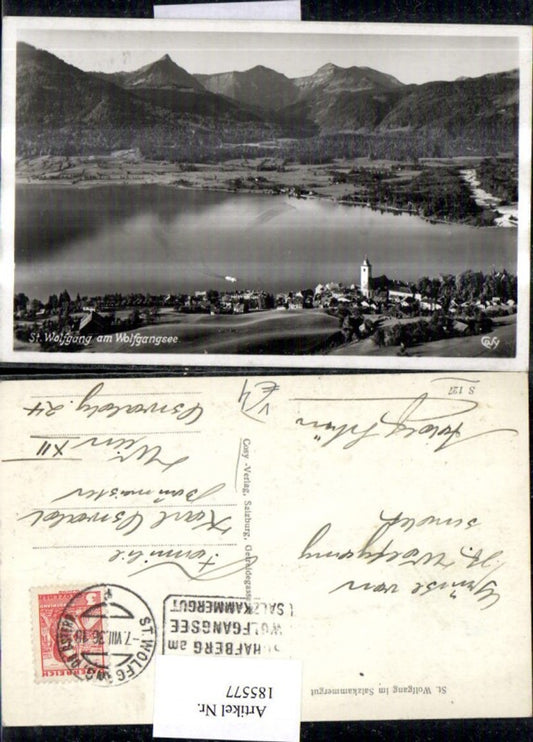 St. Wolfgang am Wolfgangsee
Cosy
St. Wolfgang im Salzkammergut
S 127
Grüsse von
St. Wolfgang
sendet
Cosy-Verlag, Salzburg, Getreidegasse
ST. WOLFG
-7. VIII. 36
ÖSTERREICH
3
SCHAFBERG am
WOLFGANGSEE
SALZKAMMERGUT
Familie
Karl
Baumeister
Wien XII
24
Artikel Nr.
185577